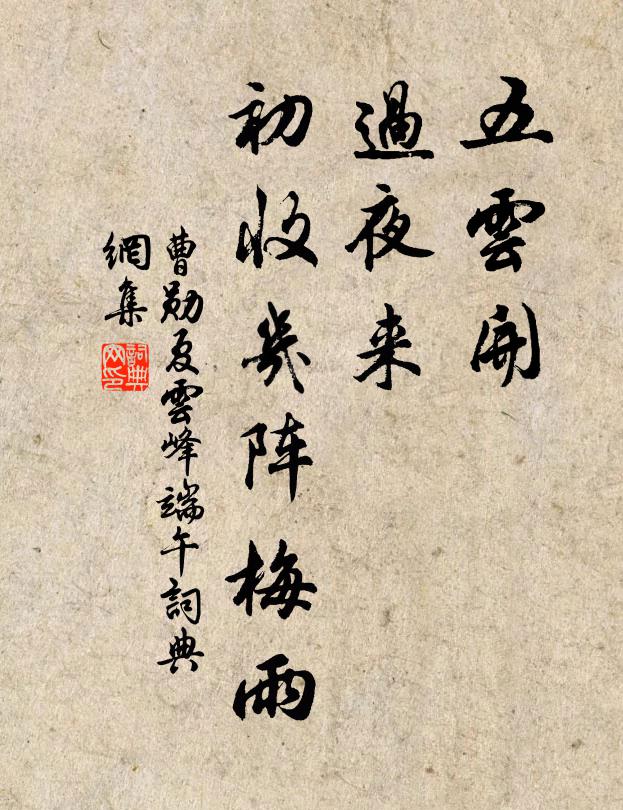 五雲開
過夜来
初收幾阵梅雨
曹勋夏雲峰端午詞典
網集
詞典
网印